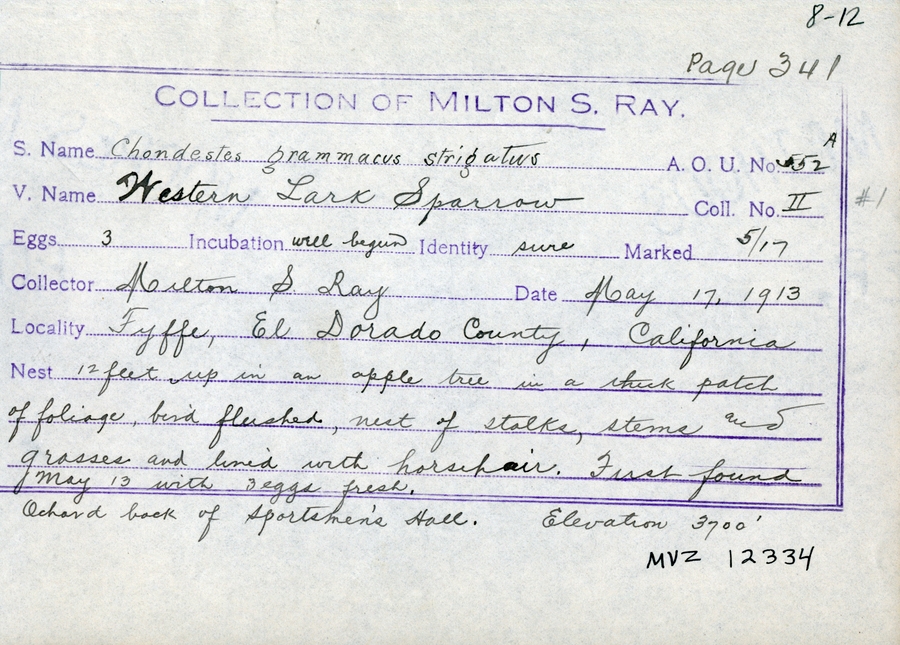 8-12
Page 341
COLLECTION OF MILTON S. RAY.
S. Name Chondestes grammacus strigatus A. O. U. No. 552 A
V. Name Western Lark Sparrow Coll. No. II #1
Eggs 3 Incubation well begun Identity sure Marked 5/17
Collector Milton S. Ray Date May 17, 1913
Locality Fyffe, El Dorado County, California
Nest 12 feet up in an apple tree in a thick patch
of foliage, bird flushed, nest of stalks, stems and
grasses and lined with horsehair. First found
May 13 with 3 eggs fresh.
Ochard back of Sportsmen's Hall. Elevation 3700'
MVZ 12334